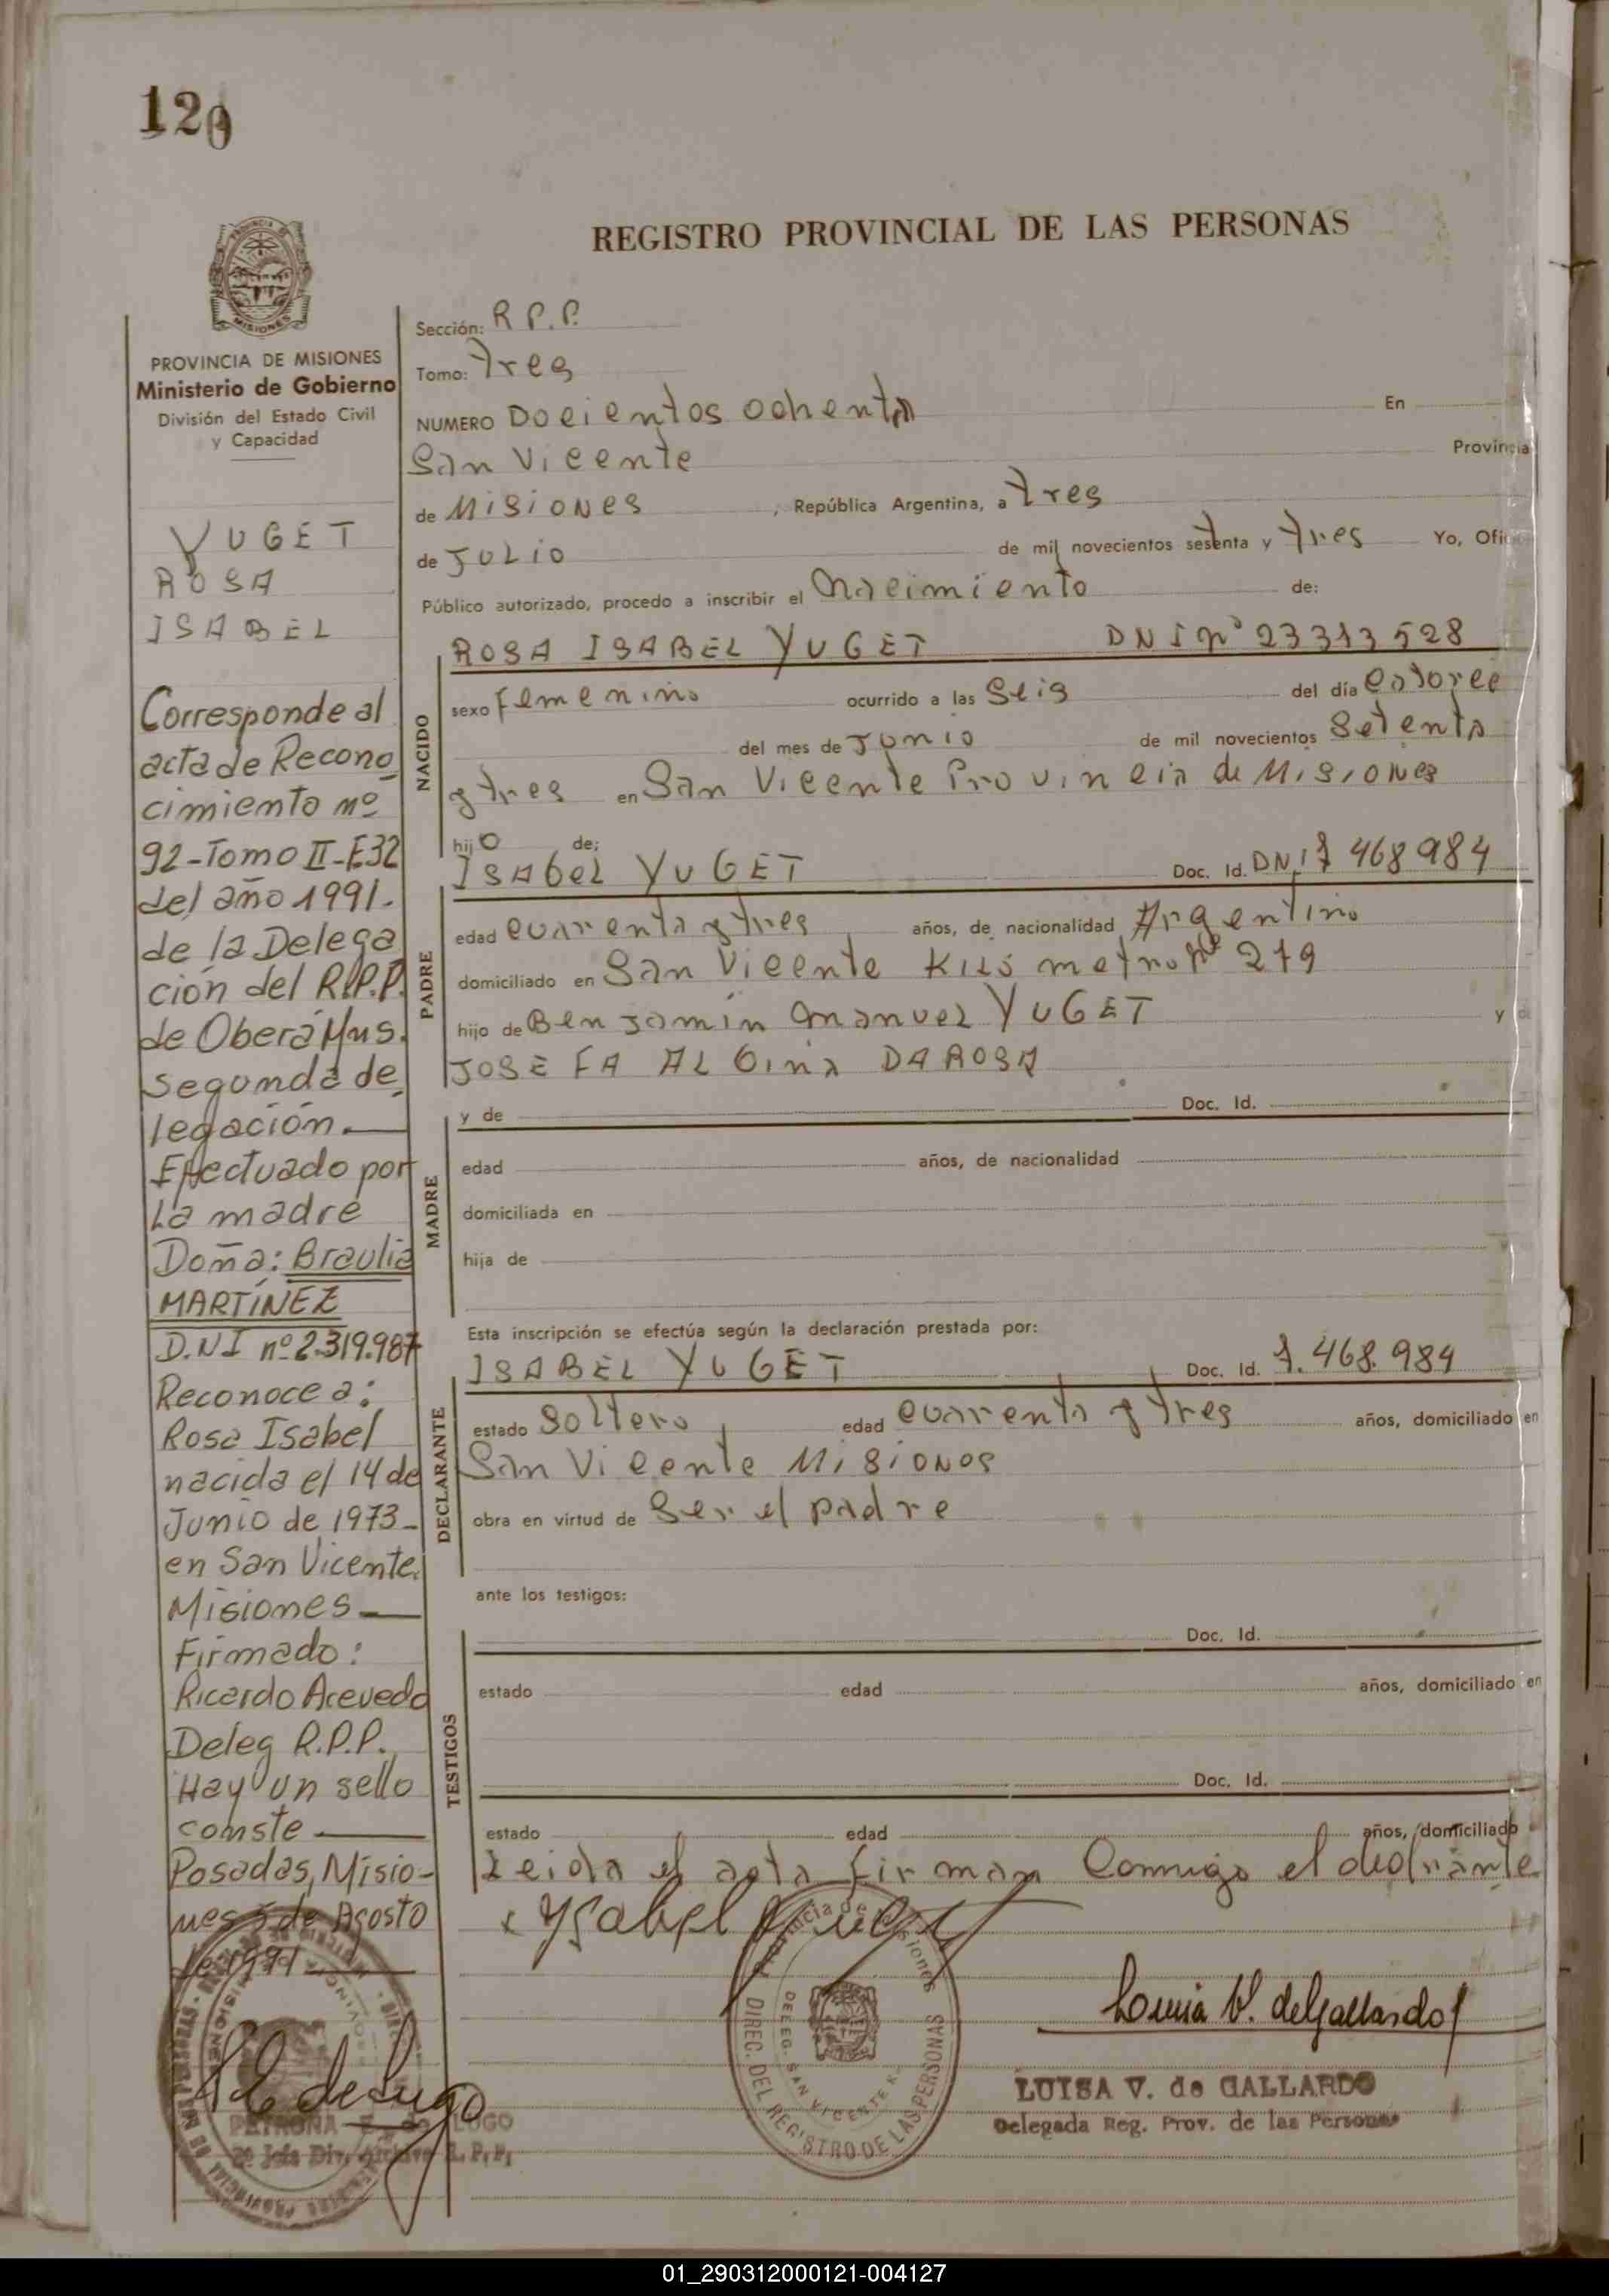 120
REGISTRO PROVINCIAL DE LAS PERSONAS
PROVINCIA DE MISIONES
Ministerio de Gobierno
División del Estado Civil
y Capacidad
YUGET
ROSA
ISABEL
Corresponde al
acta de Recono
cimiento nº
92-Tomo II-E32
del año 1991.
de la Delega
ción del R.P.P.
de Oberá Mns.
segunda de
legación.
Efectuado por
La madre
Doña: Braulia
MARTÍNEZ
D.N.I nº 2.319.987
Reconoce a:
Rosa Isabel
nacida el 14 de
Junio de 1973-
en San Vicente.
Misiones
Firmado:
Ricardo Acevedo
Deleg R.P.P.
Hay un sello
conste
Posadas, Misio-
nes 5 de Agosto
de 1991
PETRONA E. de LUGO
2º Jefe Div. Archivo R.P.P.
Sección: R P.P.
Tomo: tres
NUMERO Docientos ochenta En
San Vicente Provincia
de Misiones, República Argentina, a tres
de JULIO de mil novecientos setenta y tres Yo, Oficial
Público autorizado, procedo a inscribir el Nacimiento de:
ROSA ISABEL YUGET DNI nº 23313528
NACIDO
sexo Femenino ocurrido a las Seis del día catorce
del mes de Junio de mil novecientos Setenta
y tres en San Vicente Provincia de Misiones
hijo de:
ISAbeL YUGET Doc. Id. DNI 7 468 984
PADRE
edad cuarenta y tres años, de nacionalidad Argentino
domiciliado en San Vicente Kilómetro nº 279
hijo de Benjamín Manuel YUGET y
JOSEFA ALbina DAROSA
MADRE
y de Doc. Id.
edad años, de nacionalidad
domiciliada en
hija de
Esta inscripción se efectúa según la declaración prestada por:
ISABEL YUGET Doc. Id. 7.468.984
DECLARANTE
estado Soltero edad cuarenta y tres años, domiciliado en
San Vicente Misiones
obra en virtud de Ser el padre
ante los testigos:
TESTIGOS
Doc. Id.
estado edad años, domiciliado en
Doc. Id.
estado edad años, domiciliado
Leida el acta firman Conmigo el declarante
x Ysabel Yuget
Provincia de Misiones
DIREC. DEL REGISTRO DE LAS PERSONAS
DELEG. SAN VICENTE
Louisa V. de Gallardo
LUISA V. de GALLARDO
Delegada Reg. Prov. de las Personas
01_290312000121-004127